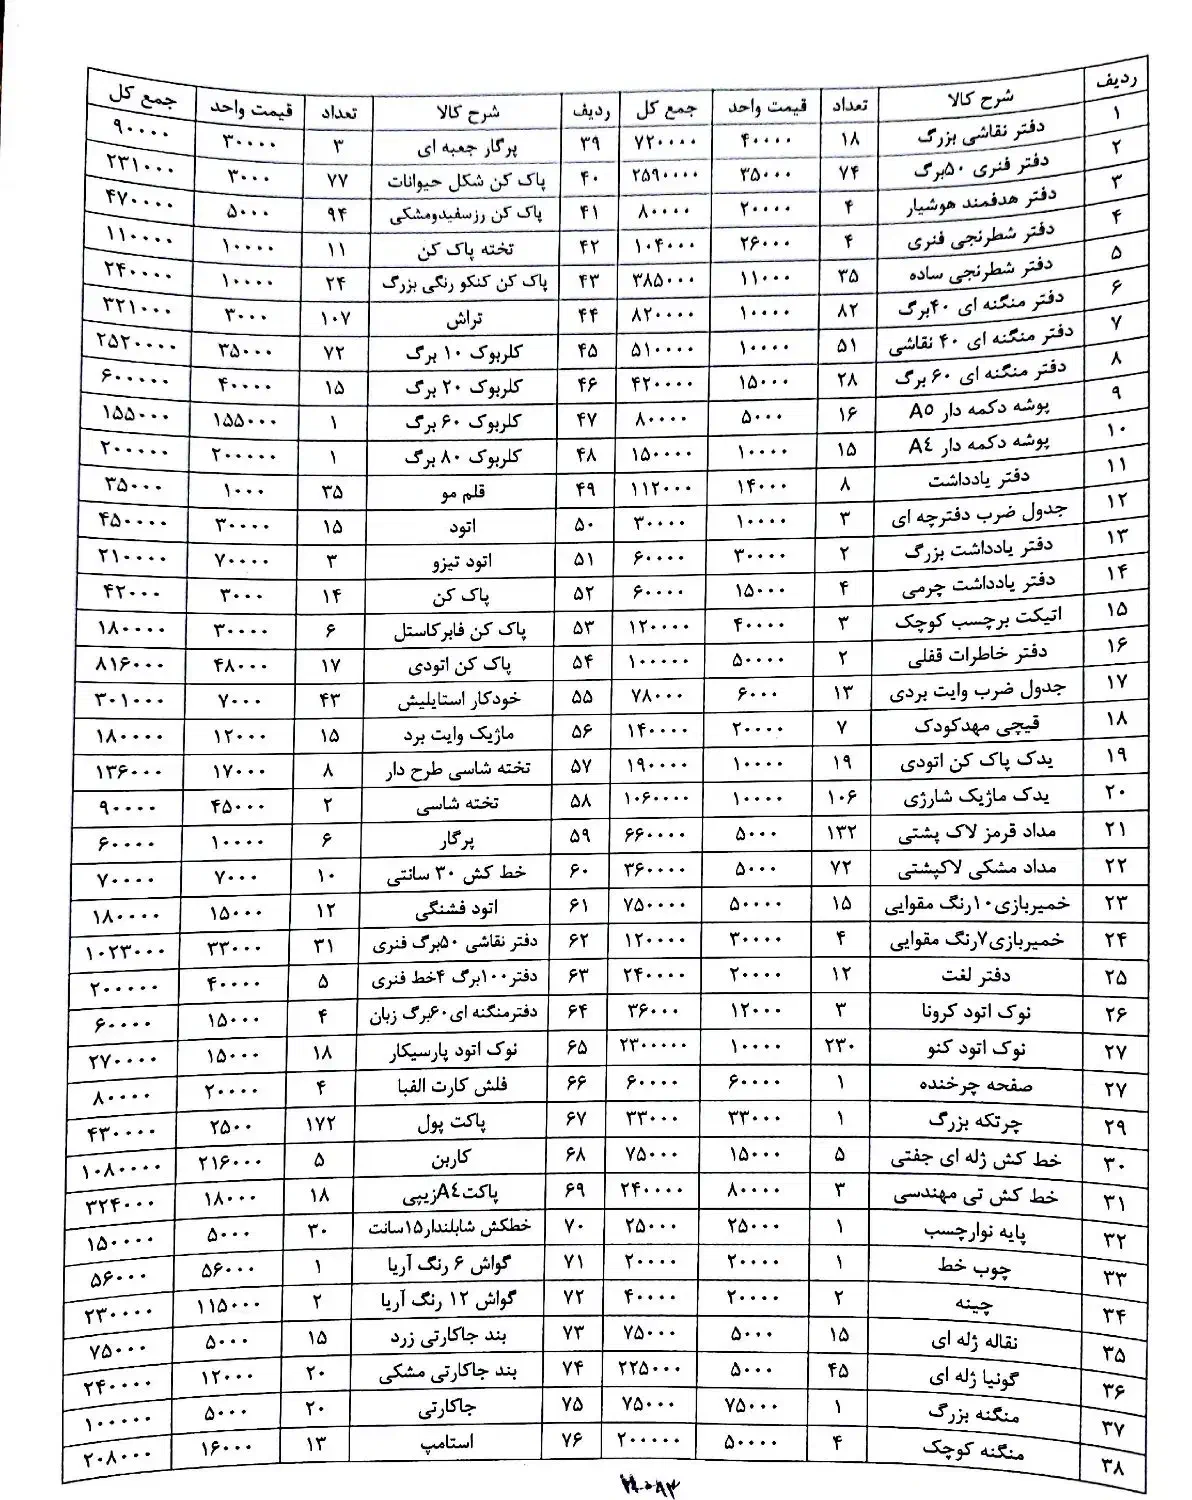 ردیف شرح کالا تعداد قیمت واحد جمع کل ردیف شرح کالا تعداد قیمت واحد جمع کل
۱ دفتر نقاشی بزرگ ۱۸ ۴۰۰۰۰ ۷۲۰۰۰۰ ۳۹ پرگار جعبه ای ۳ ۳۰۰۰۰ ۹۰۰۰۰
۲ دفتر فنری ۵۰برگ ۷۴ ۳۵۰۰۰ ۲۵۹۰۰۰۰ ۴۰ پاک کن شکل حیوانات ۷۷ ۳۰۰۰ ۲۳۱۰۰۰
۳ دفتر هدفمند هوشیار ۴ ۲۰۰۰۰ ۸۰۰۰۰ ۴۱ پاک کن رزسفیدومشکی ۹۴ ۵۰۰۰ ۴۷۰۰۰۰
۴ دفتر شطرنجی فنری ۴ ۲۶۰۰۰ ۱۰۴۰۰۰ ۴۲ تخته پاک کن ۱۱ ۱۰۰۰۰ ۱۱۰۰۰۰
۵ دفتر شطرنجی ساده ۳۵ ۱۱۰۰۰ ۳۸۵۰۰۰ ۴۳ پاک کن کنکو رنگی بزرگ ۲۴ ۱۰۰۰۰ ۲۴۰۰۰۰
۶ دفتر منگنه ای ۴۰برگ ۸۲ ۱۰۰۰۰ ۸۲۰۰۰۰ ۴۴ تراش ۱۰۷ ۳۰۰۰ ۳۲۱۰۰۰
۷ دفتر منگنه ای ۴۰ نقاشی ۵۱ ۱۰۰۰۰ ۵۱۰۰۰۰ ۴۵ کلربوک ۱۰ برگ ۷۲ ۳۵۰۰۰ ۲۵۲۰۰۰۰
۸ دفتر منگنه ای ۶۰ برگ ۲۸ ۱۵۰۰۰ ۴۲۰۰۰۰ ۴۶ کلربوک ۲۰ برگ ۱۵ ۴۰۰۰۰ ۶۰۰۰۰۰
۹ پوشه دکمه دار A۵ ۱۶ ۵۰۰۰ ۸۰۰۰۰ ۴۷ کلربوک ۶۰ برگ ۱ ۱۵۵۰۰۰ ۱۵۵۰۰۰
۱۰ پوشه دکمه دار A٤ ۱۵ ۱۰۰۰۰ ۱۵۰۰۰۰ ۴۸ کلربوک ۸۰ برگ ۱ ۲۰۰۰۰۰ ۲۰۰۰۰۰
۱۱ دفتر یادداشت ۸ ۱۴۰۰۰ ۱۱۲۰۰۰ ۴۹ قلم مو ۳۵ ۱۰۰۰ ۳۵۰۰۰
۱۲ جدول ضرب دفترچه ای ۳ ۱۰۰۰۰ ۳۰۰۰۰ ۵۰ اتود ۱۵ ۳۰۰۰۰ ۴۵۰۰۰۰
۱۳ دفتر یادداشت بزرگ ۲ ۳۰۰۰۰ ۶۰۰۰۰ ۵۱ اتود تیزو ۳ ۷۰۰۰۰ ۲۱۰۰۰۰
۱۴ دفتر یادداشت چرمی ۴ ۱۵۰۰۰ ۶۰۰۰۰ ۵۲ پاک کن ۱۴ ۳۰۰۰ ۴۲۰۰۰
۱۵ اتیکت برچسب کوچک ۳ ۴۰۰۰۰ ۱۲۰۰۰۰ ۵۳ پاک کن فابرکاستل ۶ ۳۰۰۰۰ ۱۸۰۰۰۰
۱۶ دفتر خاطرات قفلی ۲ ۵۰۰۰۰ ۱۰۰۰۰۰ ۵۴ پاک کن اتودی ۱۷ ۴۸۰۰۰ ۸۱۶۰۰۰
۱۷ جدول ضرب وایت بردی ۱۳ ۶۰۰۰ ۷۸۰۰۰ ۵۵ خودکار استایلیش ۴۳ ۷۰۰۰ ۳۰۱۰۰۰
۱۸ قیچی مهدکودک ۷ ۲۰۰۰۰ ۱۴۰۰۰۰ ۵۶ ماژیک وایت برد ۱۵ ۱۲۰۰۰ ۱۸۰۰۰۰
۱۹ یدک پاک کن اتودی ۱۹ ۱۰۰۰۰ ۱۹۰۰۰۰ ۵۷ تخته شاسی طرح دار ۸ ۱۷۰۰۰ ۱۳۶۰۰۰
۲۰ یدک ماژیک شارژی ۱۰۶ ۱۰۰۰۰ ۱۰۶۰۰۰۰ ۵۸ تخته شاسی ۲ ۴۵۰۰۰ ۹۰۰۰۰
۲۱ مداد قرمز لاک پشتی ۱۳۲ ۵۰۰۰ ۶۶۰۰۰۰ ۵۹ پرگار ۶ ۱۰۰۰۰ ۶۰۰۰۰
۲۲ مداد مشکی لاکپشتی ۷۲ ۵۰۰۰ ۳۶۰۰۰۰ ۶۰ خط کش ۳۰ سانتی ۱۰ ۷۰۰۰ ۷۰۰۰۰
۲۳ خمیربازی۱۰رنگ مقوایی ۱۵ ۵۰۰۰۰ ۷۵۰۰۰۰ ۶۱ اتود فشنگی ۱۲ ۱۵۰۰۰ ۱۸۰۰۰۰
۲۴ خمیربازی۷رنگ مقوایی ۴ ۳۰۰۰۰ ۱۲۰۰۰۰ ۶۲ دفتر نقاشی ۵۰برگ فنری ۳۱ ۳۳۰۰۰ ۱۰۲۳۰۰۰
۲۵ دفتر لغت ۱۲ ۲۰۰۰۰ ۲۴۰۰۰۰ ۶۳ دفتر۱۰۰برگ ۴خط فنری ۵ ۴۰۰۰۰ ۲۰۰۰۰۰
۲۶ نوک اتود کرونا ۳ ۱۲۰۰۰ ۳۶۰۰۰ ۶۴ دفترمنگنه ای۶۰برگ زبان ۴ ۱۵۰۰۰ ۶۰۰۰۰
۲۷ نوک اتود کنو ۲۳۰ ۱۰۰۰۰ ۲۳۰۰۰۰۰ ۶۵ نوک اتود پارسیکار ۱۸ ۱۵۰۰۰ ۲۷۰۰۰۰
۲۷ صفحه چرخنده ۱ ۶۰۰۰۰ ۶۰۰۰۰ ۶۶ فلش کارت الفبا ۴ ۲۰۰۰۰ ۸۰۰۰۰
۲۹ چرتکه بزرگ ۱ ۳۳۰۰۰ ۳۳۰۰۰ ۶۷ پاکت پول ۱۷۲ ۲۵۰۰ ۴۳۰۰۰۰
۳۰ خط کش ژله ای جفتی ۵ ۱۵۰۰۰ ۷۵۰۰۰ ۶۸ کاربن ۵ ۲۱۶۰۰۰ ۱۰۸۰۰۰۰
۳۱ خط کش تی مهندسی ۳ ۸۰۰۰۰ ۲۴۰۰۰۰ ۶۹ پاکتA٤زیپی ۱۸ ۱۸۰۰۰ ۳۲۴۰۰۰
۳۲ پایه نوارچسب ۱ ۲۵۰۰۰ ۲۵۰۰۰ ۷۰ خطکش شابلندار۱۵سانت ۳۰ ۵۰۰۰ ۱۵۰۰۰۰
۳۳ چوب خط ۱ ۲۰۰۰۰ ۲۰۰۰۰ ۷۱ گواش ۶ رنگ آریا ۱ ۵۶۰۰۰ ۵۶۰۰۰
۳۴ چینه ۲ ۲۰۰۰۰ ۴۰۰۰۰ ۷۲ گواش ۱۲ رنگ آریا ۲ ۱۱۵۰۰۰ ۲۳۰۰۰۰
۳۵ نقاله ژله ای ۱۵ ۵۰۰۰ ۷۵۰۰۰ ۷۳ بند جاکارتی زرد ۱۵ ۵۰۰۰ ۷۵۰۰۰
۳۶ گونیا ژله ای ۴۵ ۵۰۰۰ ۲۲۵۰۰۰ ۷۴ بند جاکارتی مشکی ۲۰ ۱۲۰۰۰ ۲۴۰۰۰۰
۳۷ منگنه بزرگ ۱ ۷۵۰۰۰ ۷۵۰۰۰ ۷۵ جاکارتی ۲۰ ۵۰۰۰ ۱۰۰۰۰۰
۳۸ منگنه کوچک ۴ ۵۰۰۰۰ ۲۰۰۰۰۰ ۷۶ استامپ ۱۳ ۱۶۰۰۰ ۲۰۸۰۰۰